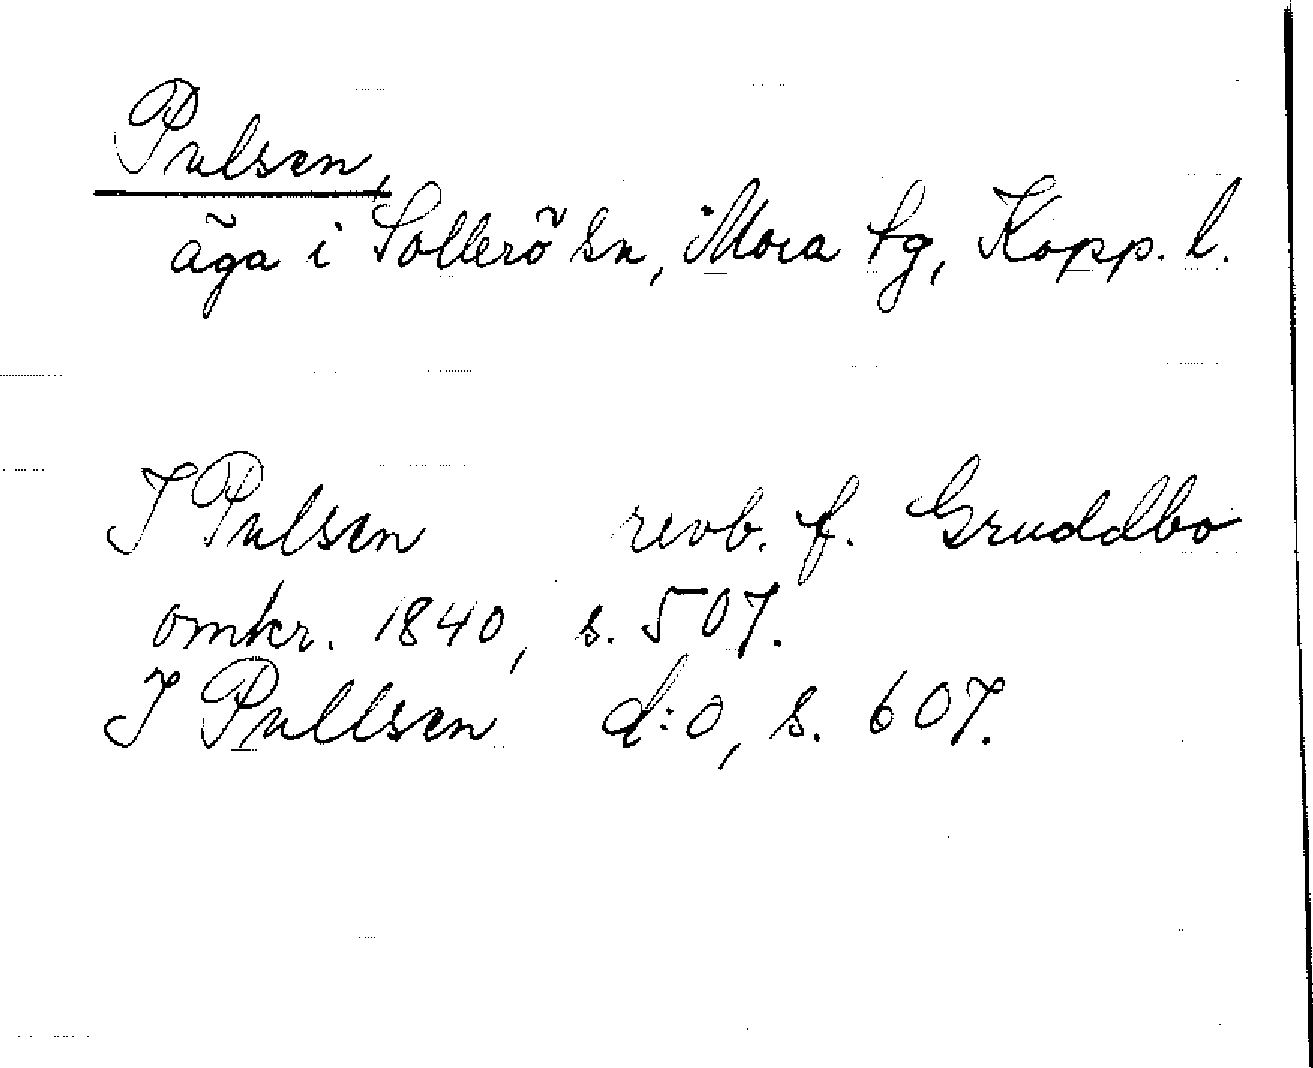 Pulsen,
äga i Sollerö sn, Mora tg, Kopp. l.
I Pulsen revb. f. Gruddbo
omkr. 1840, s. 507.
I Pullsen d:o, s. 607.